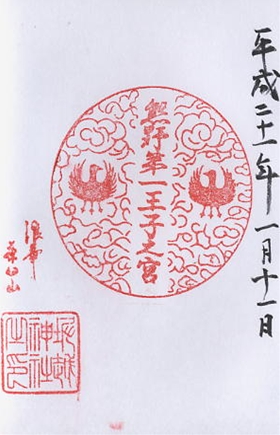 平成二十一年一月十一日
熊野第一王子之宮
浪華
茶臼山
堀越
神社
之印